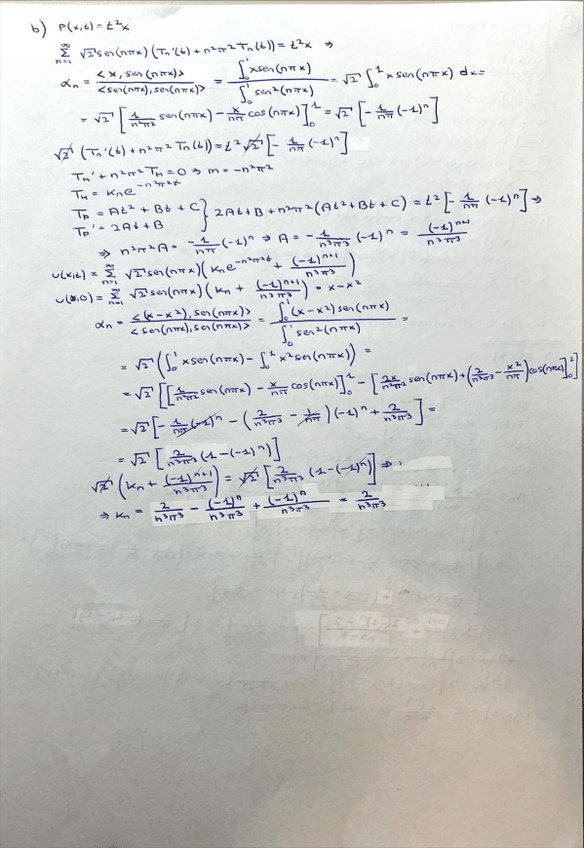 b) P(x,t) = t²x
∞∑n=1 √2 sen(nπx) (Tn'(t) + n²π² Tn(t)) = t²x ⇒
αn = <x, sen(nπx)> / <sen(nπx), sen(nπx)> = ∫₀¹ x sen(nπx) / ∫₀¹ sen²(nπx) = √2 ∫₀¹ x sen(nπx) dx =
= √2 [1/n²π² sen(nπx) - x/nπ cos(nπx)]₀¹ = √2 [-1/nπ (-1)ⁿ]
√2 (Tn'(t) + n²π² Tn(t)) = t² √2 [-1/nπ (-1)ⁿ]
Tn' + n²π² Tn = 0 ⇒ m = -n²π²
TH = Kn e^(-n²π²t)
Tp = At² + Bt + C } 2At + B + n²π² (At² + Bt + C) = t² [-1/nπ (-1)ⁿ] ⇒
Tp' = 2At + B
⇒ n²π²A = -1/nπ (-1)ⁿ ⇒ A = -1/n³π³ (-1)ⁿ = (-1)ⁿ⁺¹/n³π³
u(x,t) = ∞∑n=1 √2 sen(nπx) (Kn e^(-n²π²t) + (-1)ⁿ⁺¹/n³π³)
u(x,0) = ∞∑n=1 √2 sen(nπx) (Kn + (-1)ⁿ⁺¹/n³π³) = x - x²
αn = <(x-x²), sen(nπx)> / <sen(nπx), sen(nπx)> = ∫₀¹ (x-x²) sen(nπx) / ∫₀¹ sen²(nπx) =
= √2 (∫₀¹ x sen(nπx) - ∫₀¹ x² sen(nπx)) =
= √2 [[1/n²π² sen(nπx) - x/nπ cos(nπx)]₀¹ - [2x/n²π² sen(nπx) + (2/n³π³ - x²/nπ) cos(nπx)]₀¹]
= √2 [-1/nπ (-1)ⁿ - (2/n³π³ - 1/nπ) (-1)ⁿ + 2/n³π³] =
= √2 [2/n³π³ (1-(-1)ⁿ)]
√2 (Kn + (-1)ⁿ⁺¹/n³π³) = √2 [2/n³π³ (1-(-1)ⁿ)] ⇒
⇒ Kn = 2/n³π³ - (-1)ⁿ/n³π³ + (-1)ⁿ/n³π³ = 2/n³π³